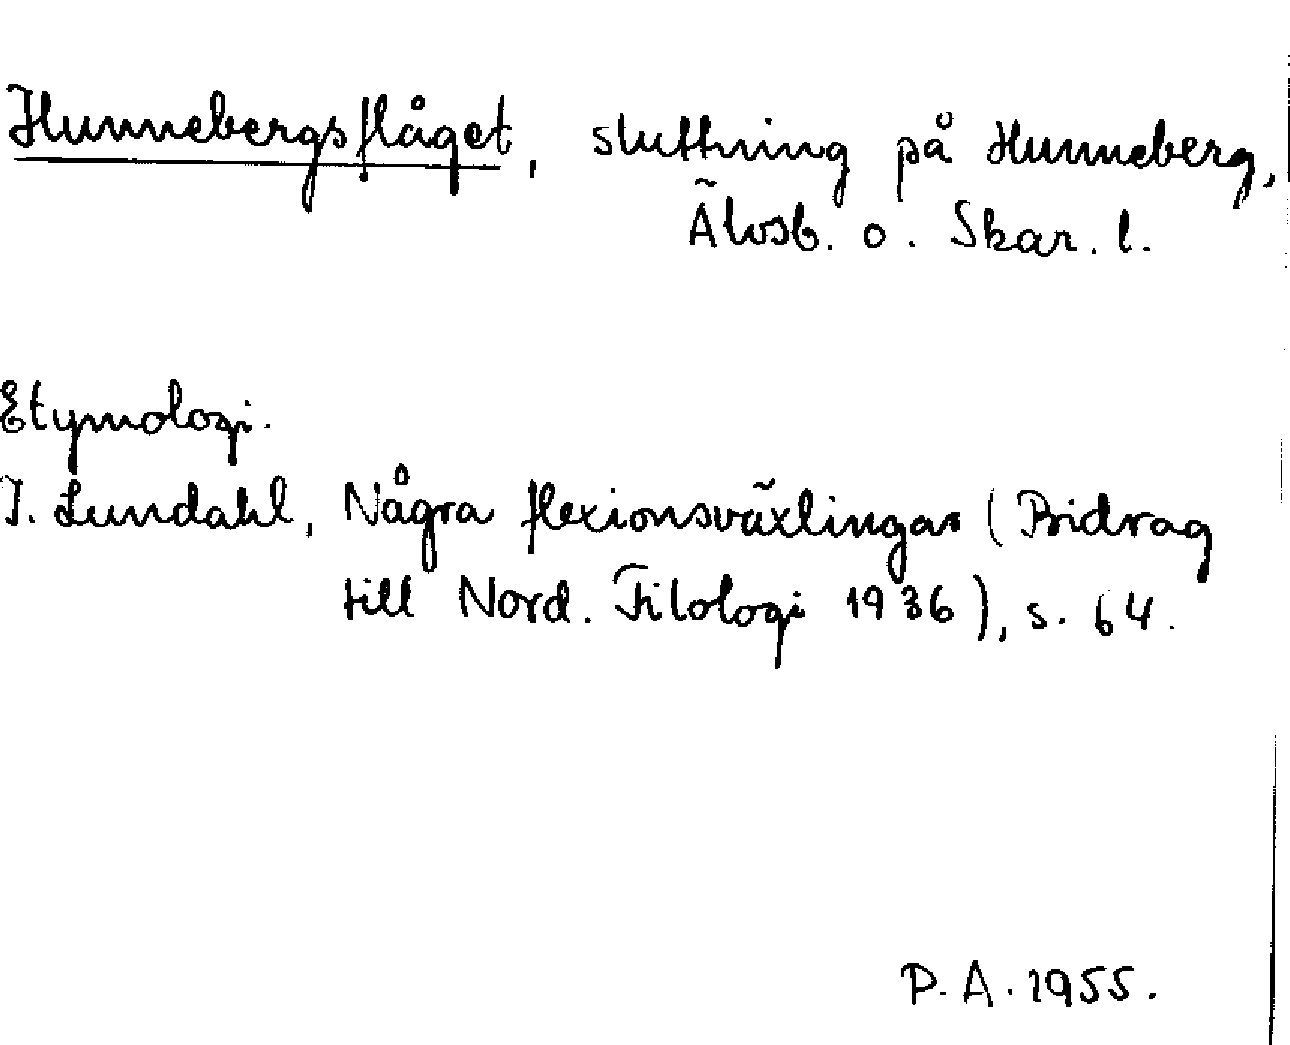 Hunnebergsflåget, sluttning på Hunneberg,
Älvsb. o. Skar. l.
Etymologi.
I. Lundahl, Några flexionsväxlingar (Bidrag
till Nord. Filologi 1936), s. 64.
P. A. 1955.